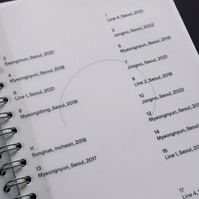 1
Line 4, Seoul, 2020
2
Seongmun, Seoul, 2021
3
Jongno, Seoul, 2022
4
Myeongnyun, Seoul, 2018
5
Jongno, Seoul, 2022
6
Line 1, Seoul, 2021
7
Myeongnyun, Seoul, 2019
8
Myeongdong, Seoul, 2019
9
Line 2, Seoul, 2018
10
Jongno, Seoul, 2022
11
Songhak, Incheon, 2018
12
Myeongnyun, Seoul
13
Myeongnyun, Seoul, 2017
14
Myeongnyun, Seoul
15
Line 1, Seoul, 20
17
Line 4, Seoul